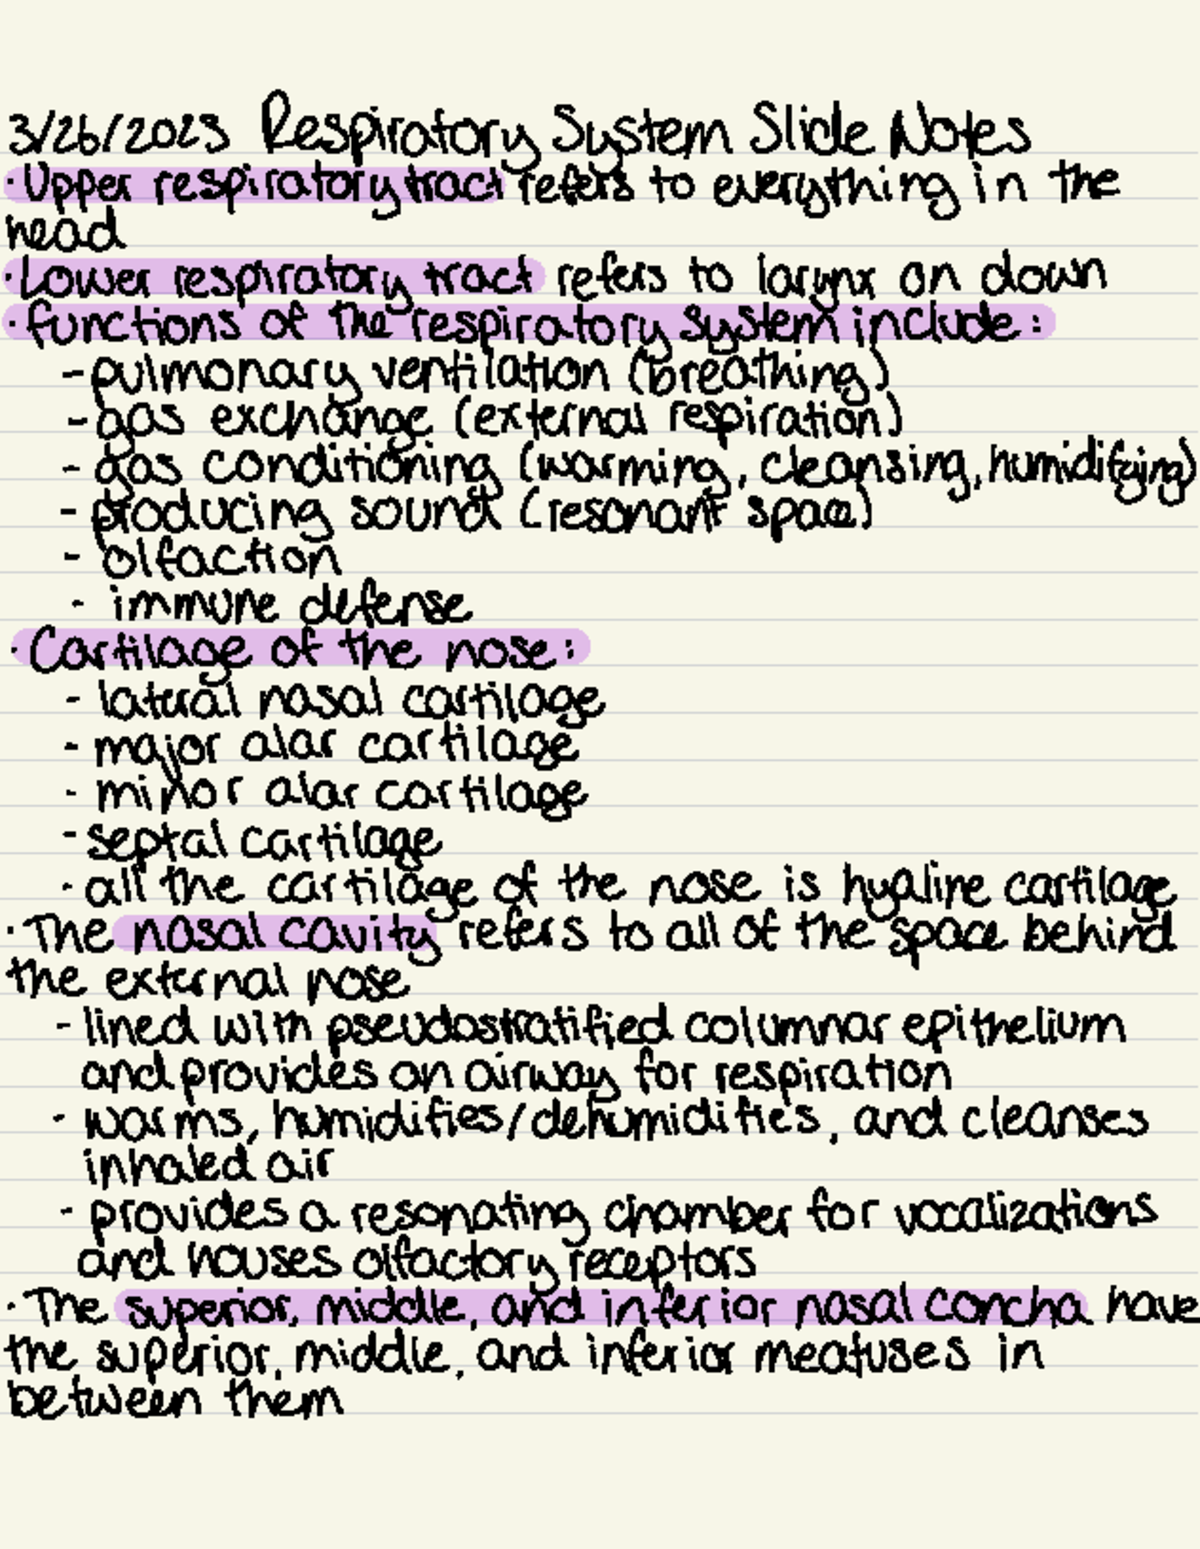 3/26/2023 Respiratory System Slide Notes
·Upper respiratory tract refers to everything in the
head
·Lower respiratory tract refers to larynx on down
·functions of the respiratory system include:
-pulmonary ventilation (breathing)
-gas exchange (external respiration)
-gas conditioning (warming, cleansing, humidifying)
-producing sound (resonant space)
- olfaction
- immune defense
·Cartilage of the nose:
- lateral nasal cartilage
- major alar cartilage
- minor alar cartilage
-septal cartilage
·all the cartilage of the nose is hyaline cartilage
·The nasal cavity refers to all of the space behind
the external nose
-lined with pseudostratified columnar epithelium
and provides an airway for respiration
- warms, humidifies/dehumidifies, and cleanses
inhaled air
-provides a resonating chamber for vocalizations
and houses olfactory receptors
·The superior, middle, and inferior nasal concha have
the superior, middle, and inferior meatuses in
between them